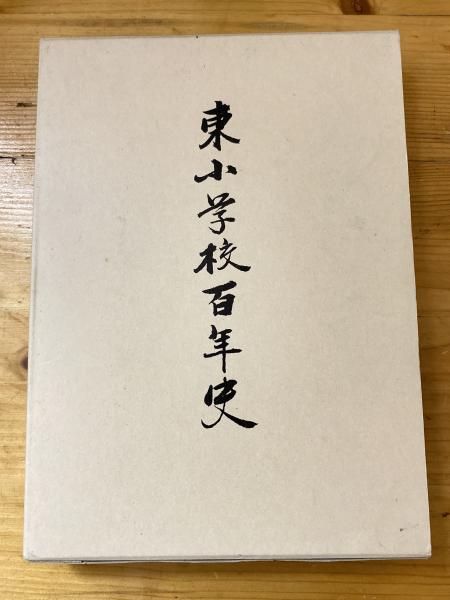 東小学校百年史